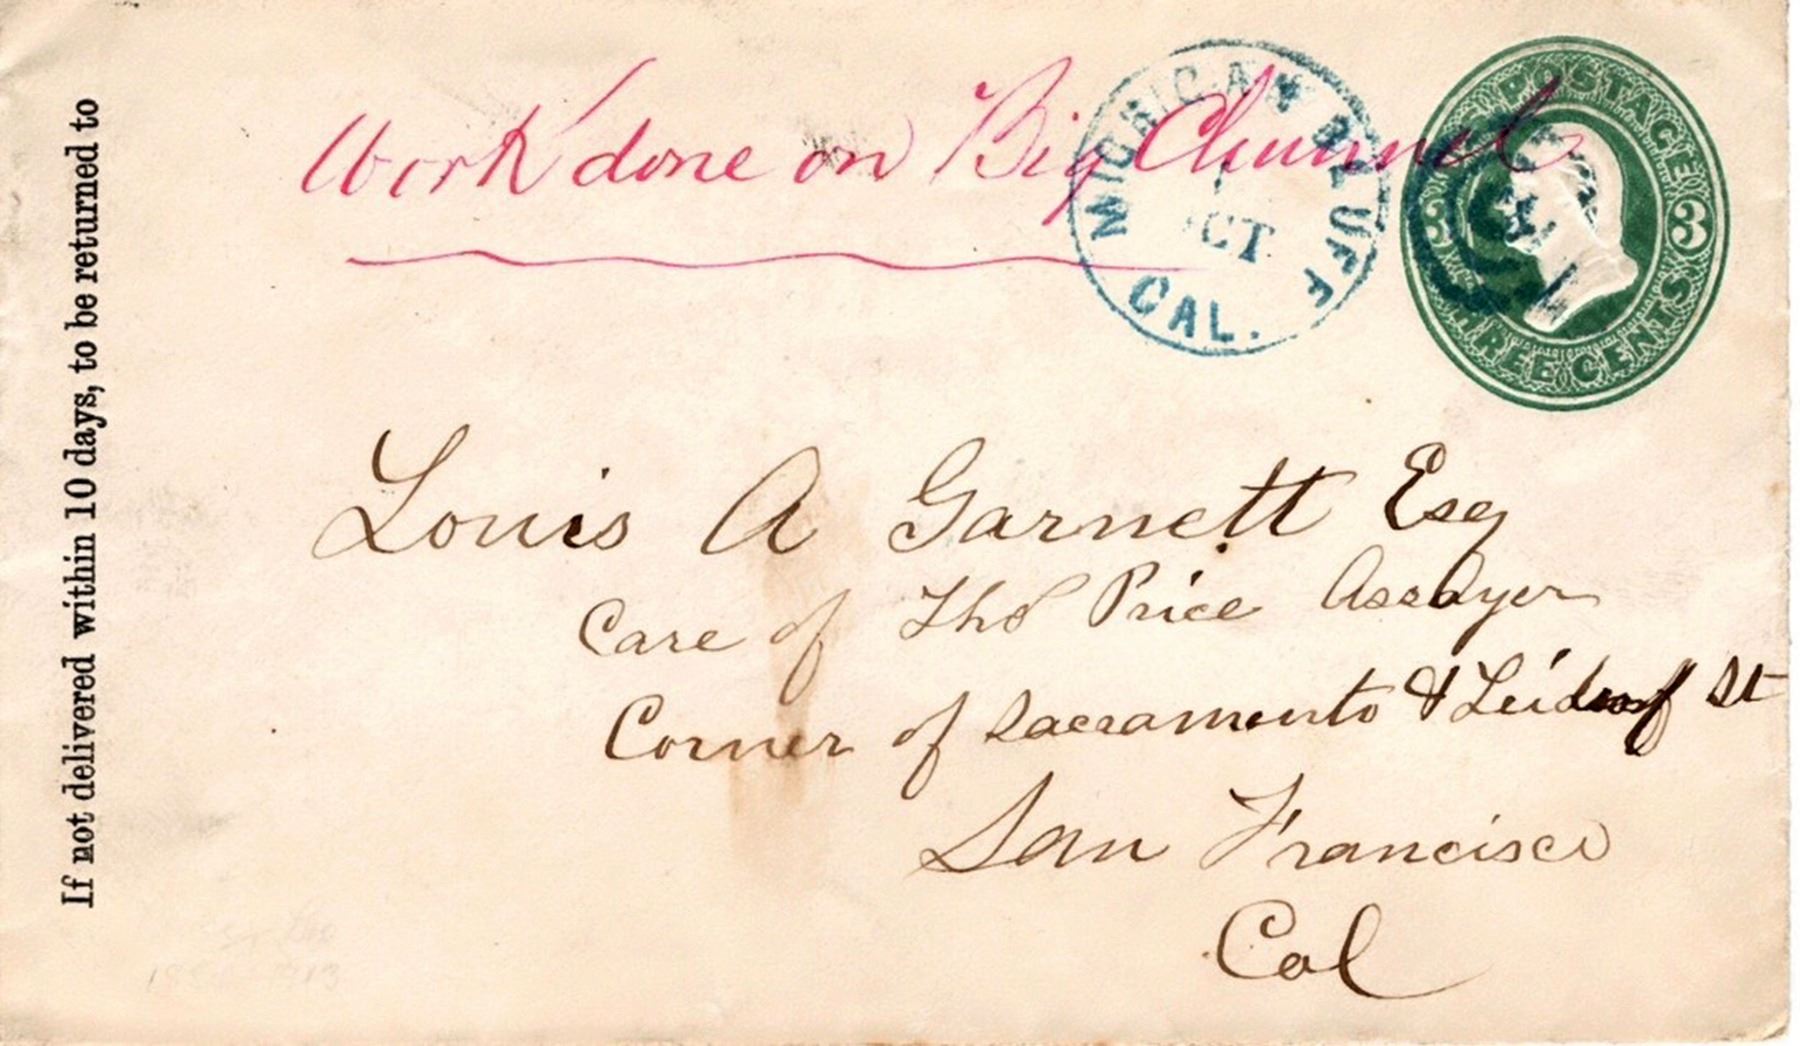 If not delivered within 10 days, to be returned to
Work done on Big Channel
MICHIGAN BLUFF
CAL.
OCT
POSTAGE
3 3
THREE CENTS
Louis A Garnett Esq
Care of Thos Price Assayer
Corner of Sacramento & St
San Francisco
Cal